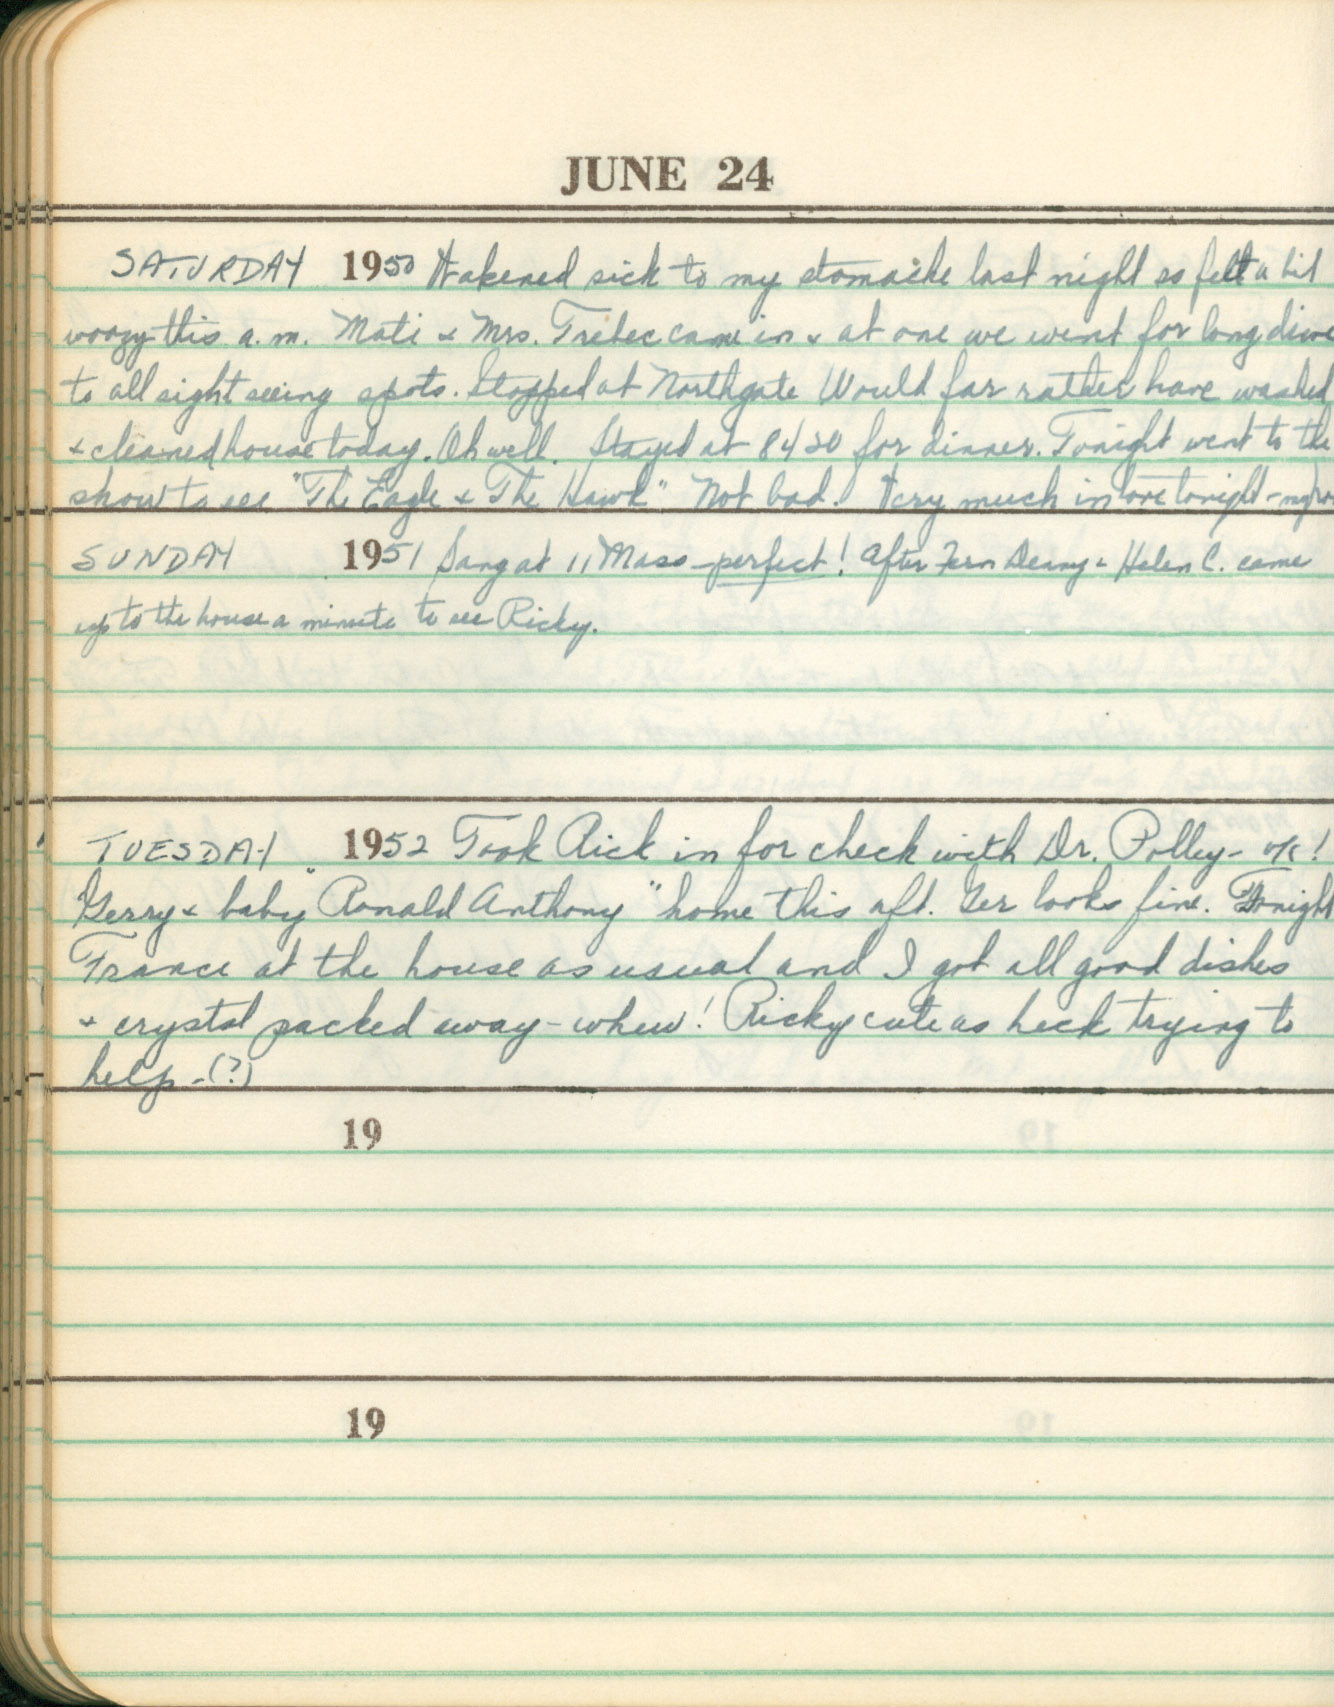 JUNE 24
SATURDAY 1950 Wakened sick to my stomache last night so felt a bit
woozy this a.m. Mati & Mrs. Trebec came in & at one we went for long drive
to all sight seeing spots. Stopped at Northgate Would far rather have washed
& cleaned house today. Oh well. Stayed at 8420 for dinner. Tonight went to the
show to see "The Eagle & The Hawk" Not bad! Very much in love tonight -
SUNDAY 1951 Sang at 11 Mass - perfect! After Fern Denny & Helen C. came
up to the house a minute to see Ricky.
TUESDAY 1952 Took Rick in for check with Dr. Polley - ok!
Gerry & baby "Ronald Anthony" home this aft. Ger looks fine. Tonight
France at the house as usual and I got all good dishes
& crystal packed away - whew! Ricky cute as heck trying to
help - (?)
19
19